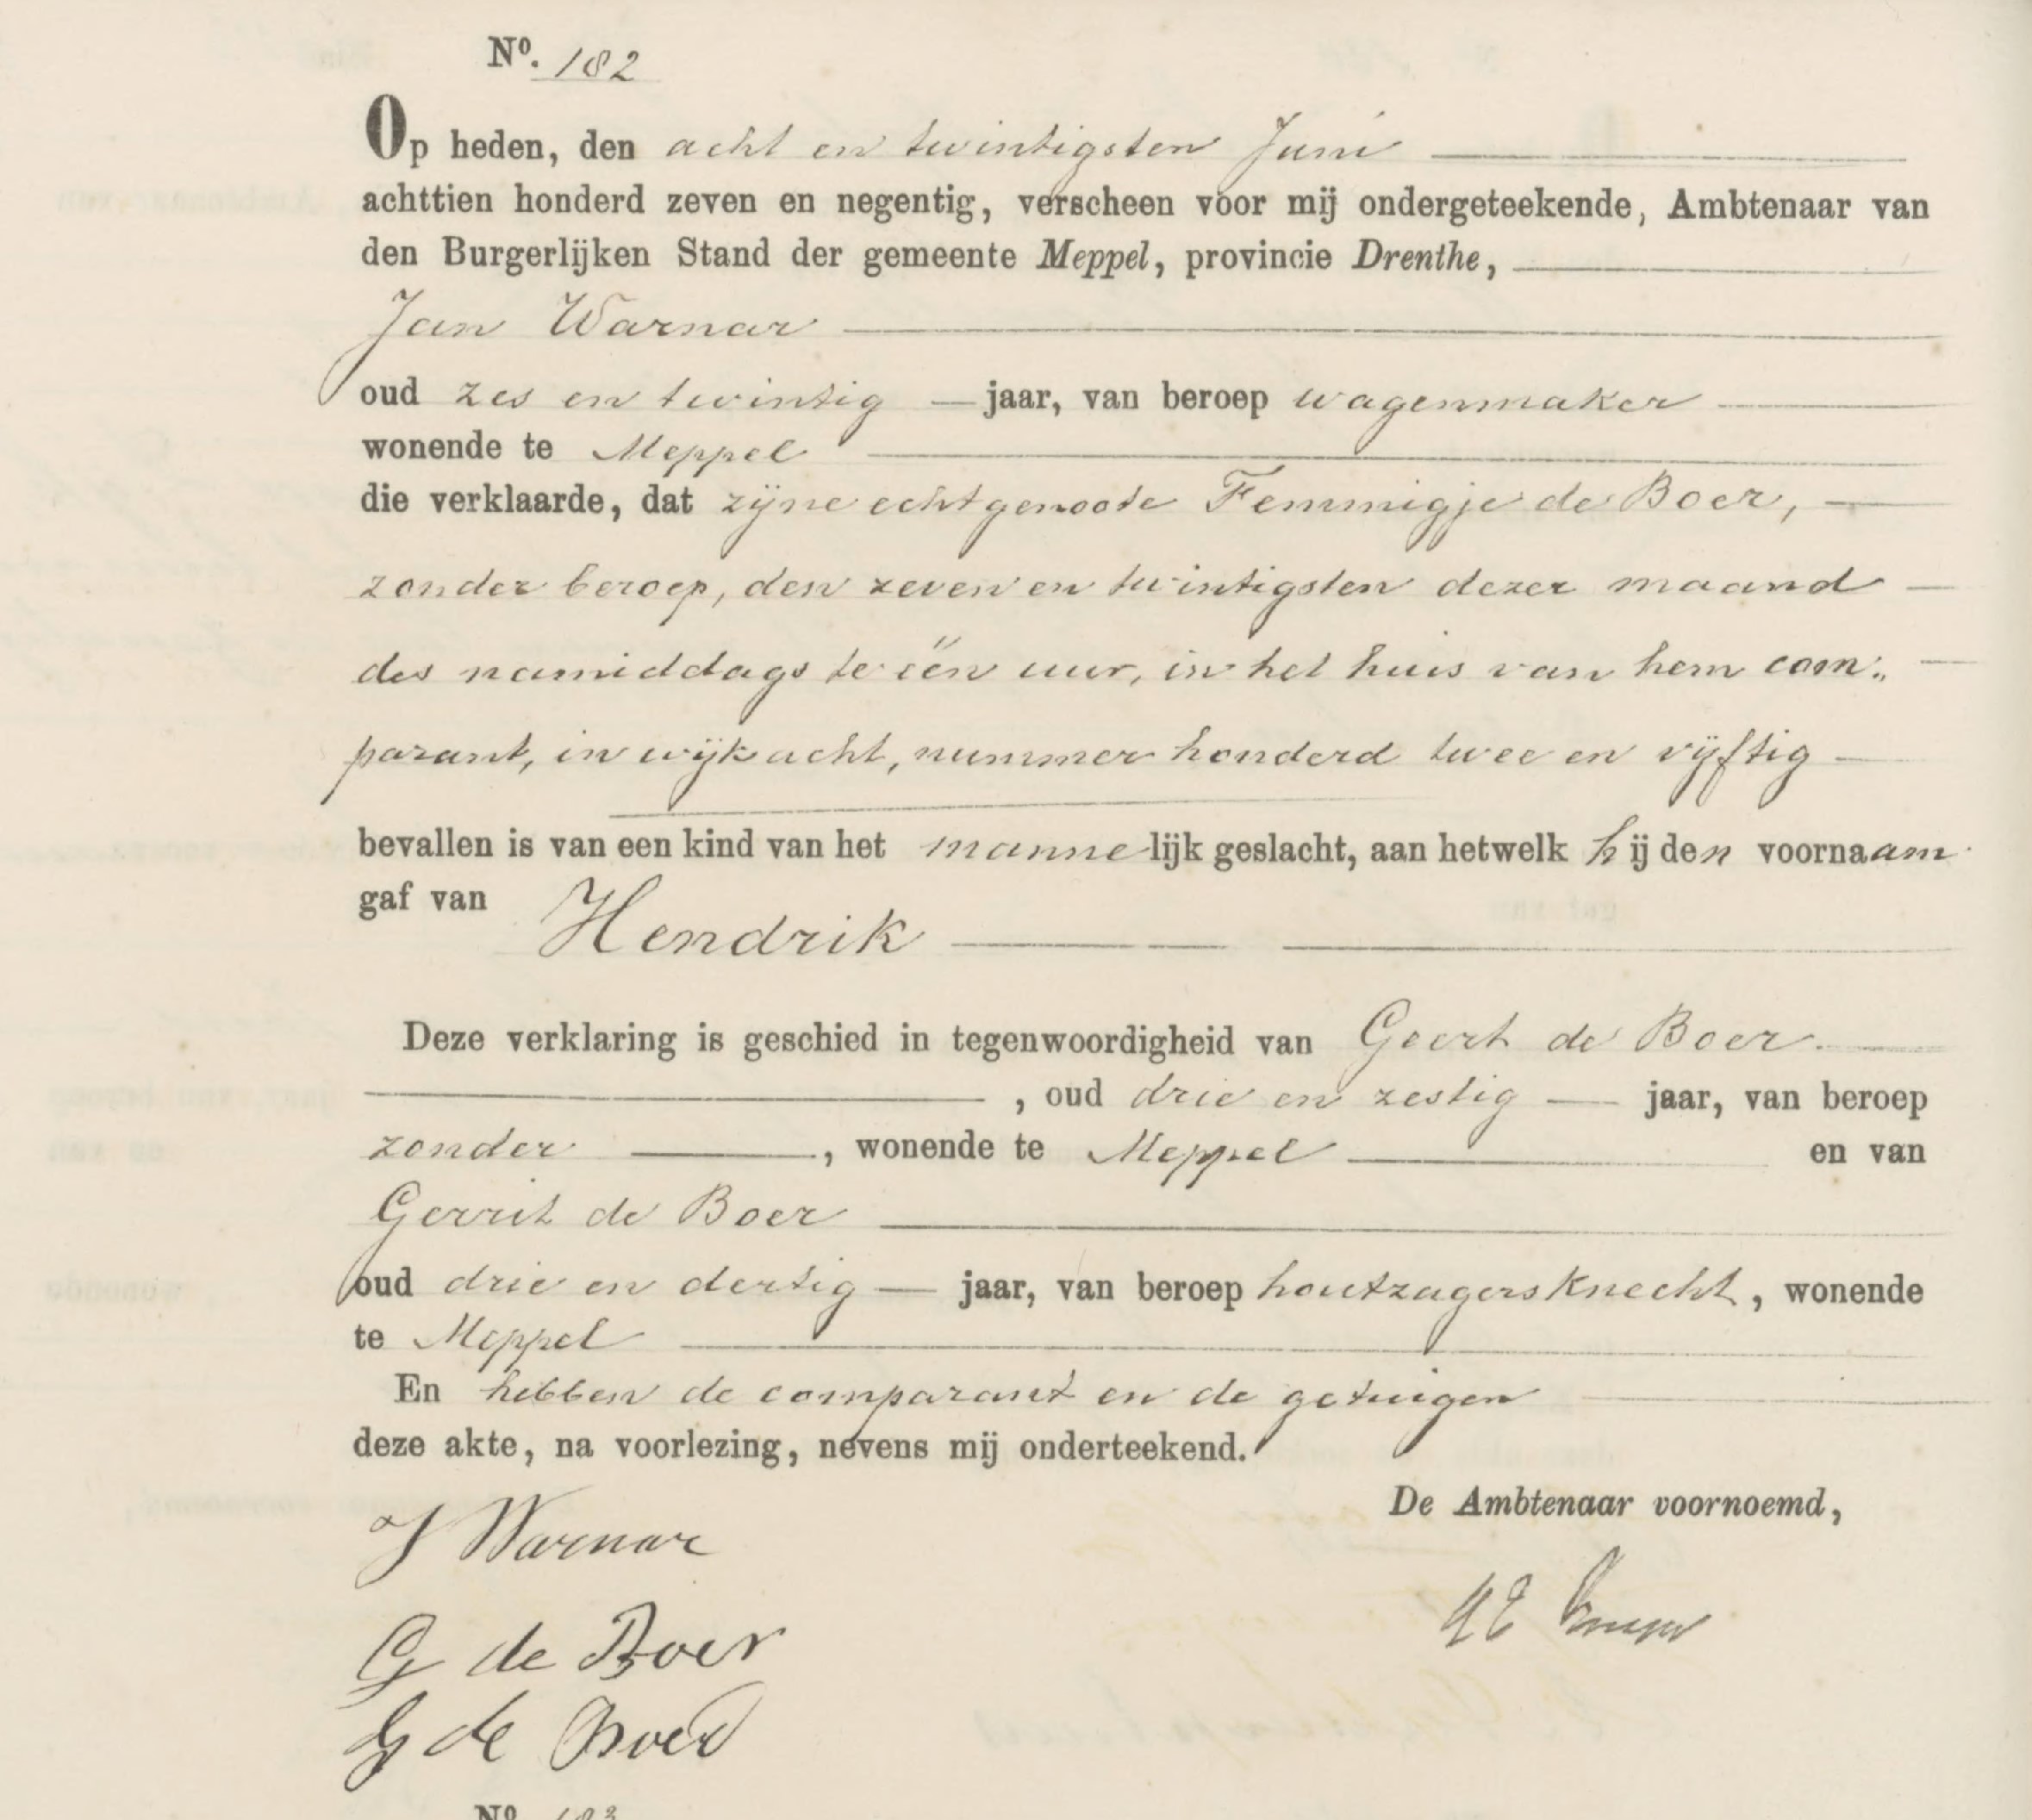 Nº. 182
Op heden, den acht en twintigsten Juni
achttien honderd zeven en negentig, verscheen voor mij ondergeteekende, Ambtenaar van
den Burgerlijken Stand der gemeente Meppel, provincie Drenthe,
Jan Warnar
oud zes en twintig — jaar, van beroep wagenmaker
wonende te Meppel
die verklaarde, dat zijne echtgenoote Femmigje de Boer, —
zonder beroep, den zeven en twintigsten dezer maand —
des namiddags te één uur, in het huis van hem com„ —
parant, in wijk acht, nummer honderd twee en vijftig —
bevallen is van een kind van het mannelijk geslacht, aan hetwelk hij den voornaam
gaf van Hendrik
Deze verklaring is geschied in tegenwoordigheid van Geert de Boer
, oud drie en zestig — jaar, van beroep
zonder —, wonende te Meppel — en van
Gerrit de Boer
oud drie en dertig — jaar, van beroep houtzagersknecht, wonende
te Meppel
En hebben de comparant en de getuigen
deze akte, na voorlezing, nevens mij onderteekend.
De Ambtenaar voornoemd,
J Warnar
G de Boer
G de Boer
Nº 183